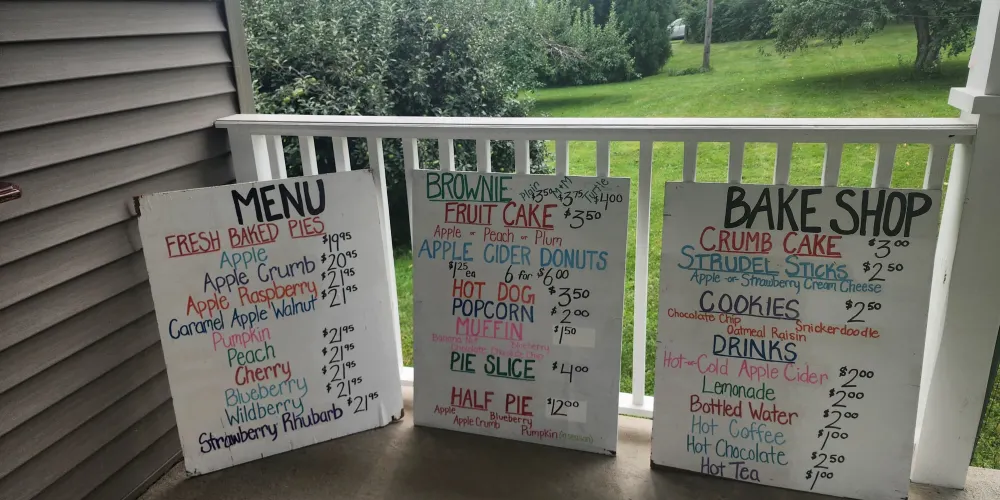 MENU
FRESH BAKED PIES
Apple $19.95
Apple Crumb $20.95
Apple Raspberry $21.95
Caramel Apple Walnut $21.95
Pumpkin
Peach $21.95
Cherry $21.95
Blueberry $21.95
Wildberry $21.95
Strawberry Rhubarb $21.95
BROWNIE Plain $3.50 M&M $3.75 Turtle $4.00
FRUIT CAKE $3.50
Apple or Peach or Plum
APPLE CIDER DONUTS
$1.25 ea 6 for $6.00
HOT DOG $3.50
POPCORN $2.00
MUFFIN $1.50
Banana Nut Blueberry
Chocolate Chocolate Chip
PIE SLICE $4.00
HALF PIE $12.00
Apple Blueberry
Apple Crumb Pumpkin
BAKE SHOP
CRUMB CAKE $3.00
STRUDEL STICKS $2.50
Apple or Strawberry Cream Cheese
COOKIES $2.50
Chocolate Chip Snickerdoodle
Oatmeal Raisin
DRINKS
Hot or Cold Apple Cider $2.00
Lemonade $2.00
Bottled Water $2.00
Hot Coffee $1.00
Hot Chocolate $2.50
Hot Tea $1.00